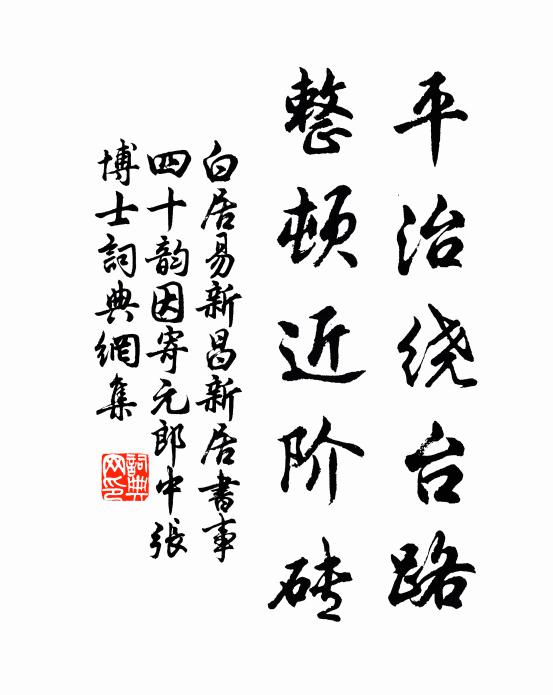 平治绕台路
整顿近阶砖
白居易新昌新居书事
四十韵因寄元郎中张
博士詞典網集
詞典
网印